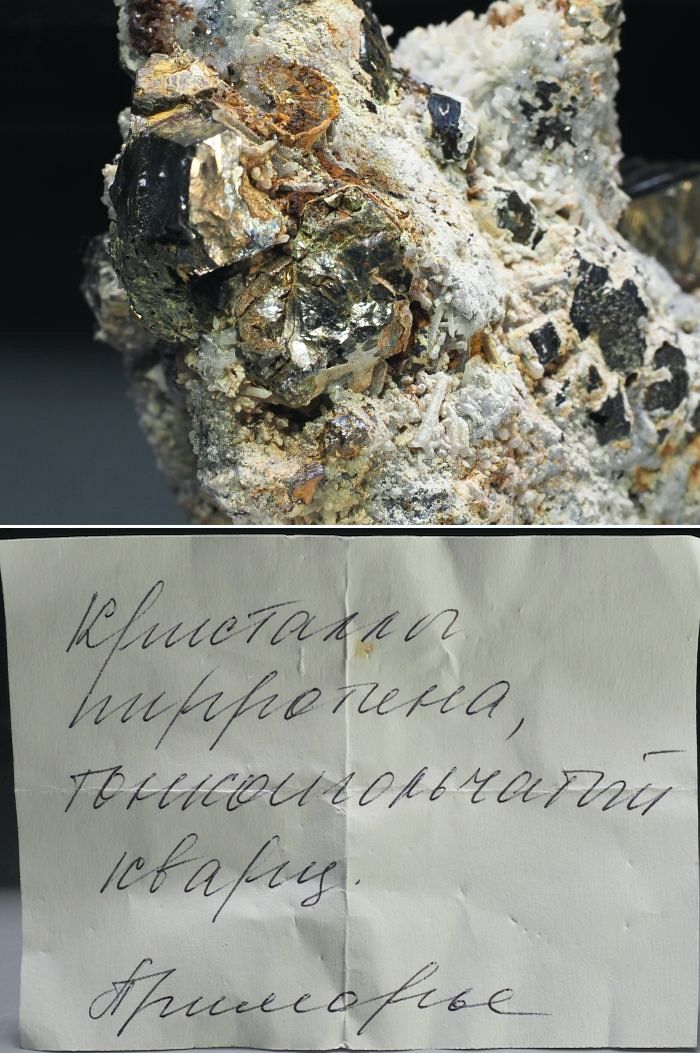 Кристаллы
пирротина,
тонкоигольчатый
кварц.
Приморье